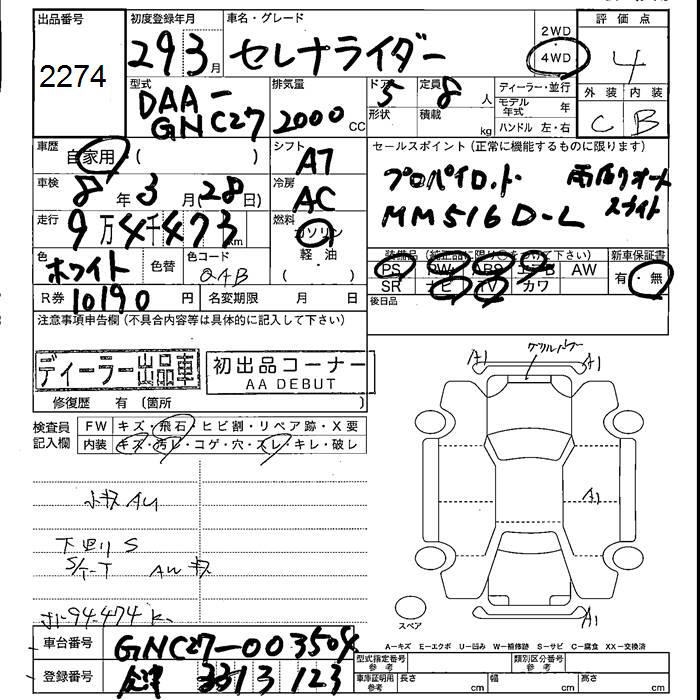 出品番号 初度登録年月 車名・グレード 2WD 評価点
2274 29 3月 セレナライダー 4WD 4
型式 排気量 ドア 定員 ディーラー・並行 外装 内装
DAA-GNC27 2000 CC 5 形状 8人 積載 kg モデル年式 年 ハンドル 左・右 C B
車歴 自家用 ( ) シフト A7 セールスポイント (正常に機能するものに限ります)
車検 8年 3月 28日) 冷房 AC プロパイロット
走行 9万4千473km 燃料 ガソリン MM516D-L
色 ホワイト 色替 色コード QAB 軽・油 ( ) 装備品 (純正品に限り○をつけて下さい) 新車保証書
PS PW ABS エアB AW 有・無
SR ナビ TV カワ
R券 10190円 名変期限 月 日 後日品
注意事項申告欄 (不具合内容等は具体的に記入して下さい)
ディーラー出品車 初出品コーナー
AA DEBUT
修復歴 有 (箇所 )
検査員 FW キズ・飛石・ヒビ割・リペア跡・X要
記入欄 内装 キズ・汚レ・コゲ・穴・スレ・キレ・破レ
A1 A1
A1
小キズ AU
下回り S
S/T-T AW キズ
94.474 K
A1
スペア
A-キズ E-エクボ U-凹み W-補修跡 S-サビ C-腐食 XX-交換済
車台番号 GNC27-003504 型式指定番号 参考 類別区分番号 参考
登録番号 会津 331 3 123 車庫証明用 参考 長さ cm 幅 cm 高さ cm